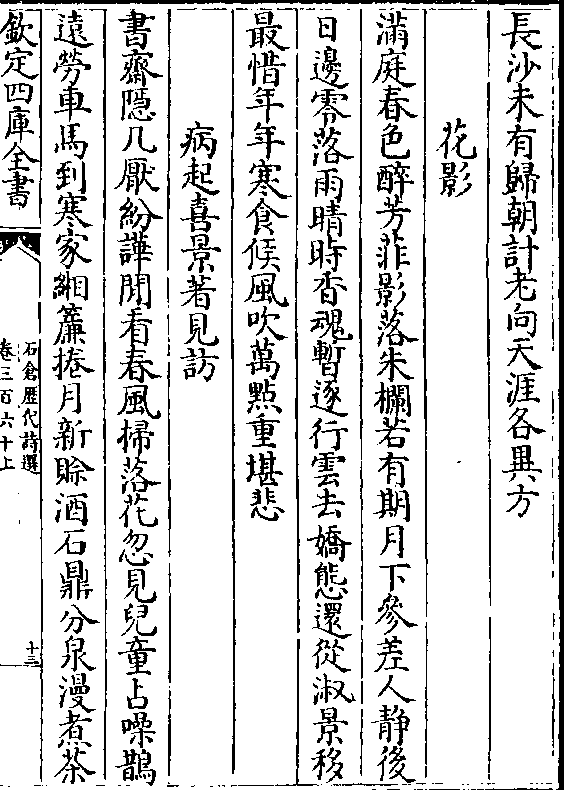 長沙未有歸朝計老向天涯各異方
花影
滿庭春色醉芳菲影落朱欄若有期月下參差人静後
日邊零落雨晴時香魂暫逐行雲去嬌態還從淑景移
最惜年年寒食候風吹萬點重堪悲
病起喜景著見訪
書齋隱几厭紛譁閒看春風掃落花忽見兒童占噪鵲
遠勞車馬到寒家緗簾捲月新賖酒石鼎分泉漫煮茶
欽定四庫全書
石倉歷代詩選
卷三百六十上
十三